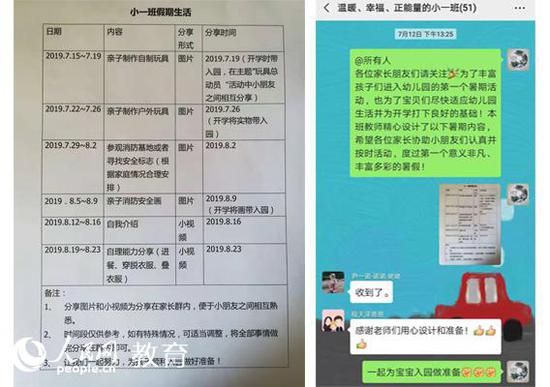 小一班假期生活
日期 内容 分享形式 分享时间
2019.7.15~7.19 亲子制作自制玩具 图片 2019.7.19（开学时带
入园，在主题“玩具总
动员“活动中小朋友
之间相互分享）
2019.7.22~7.26 亲子制作户外玩具 图片 2019.7.26
（开学将实物带入园）
2019.7.29~8.2 参观消防基地或者
寻找安全标志（根
据家庭情况合理安
排） 图片 2019.8.2
2019．8.5~8.9 亲子消防安全画 图片 2019.8.9
（开学将画带入园）
2019.8.12~8.16 自我介绍 小视频 2019.8.16
2019.8.19~8.23 自理能力分享（进
餐、穿脱衣服、叠
衣服） 小视频 2019.8.23
备注：
1、 分享图片和小视频为分享在家长群内，便于小朋友之间相互熟
悉。
2、 时间段仅供参考，如有特殊情况，可适当调整，将全部事情做
人民网 教育
people.cn
温暖、幸福、正能量的小一班(51)
7月12日 下午13:25
@所有人
各位家长朋友们请关注为了丰富
孩子们进入幼儿园的第一个暑期活
动，也为了宝贝们尽快适应幼儿园
生活并为开学打下良好的基础！本
班教师精心设计了以下暑期内容，
希望各位家长协助小朋友们认真并
按时活动，度过第一个意义非凡、
丰富多彩的暑假！
收到了。
感谢老师们用心设计和准备！
一起为宝宝入园做准备